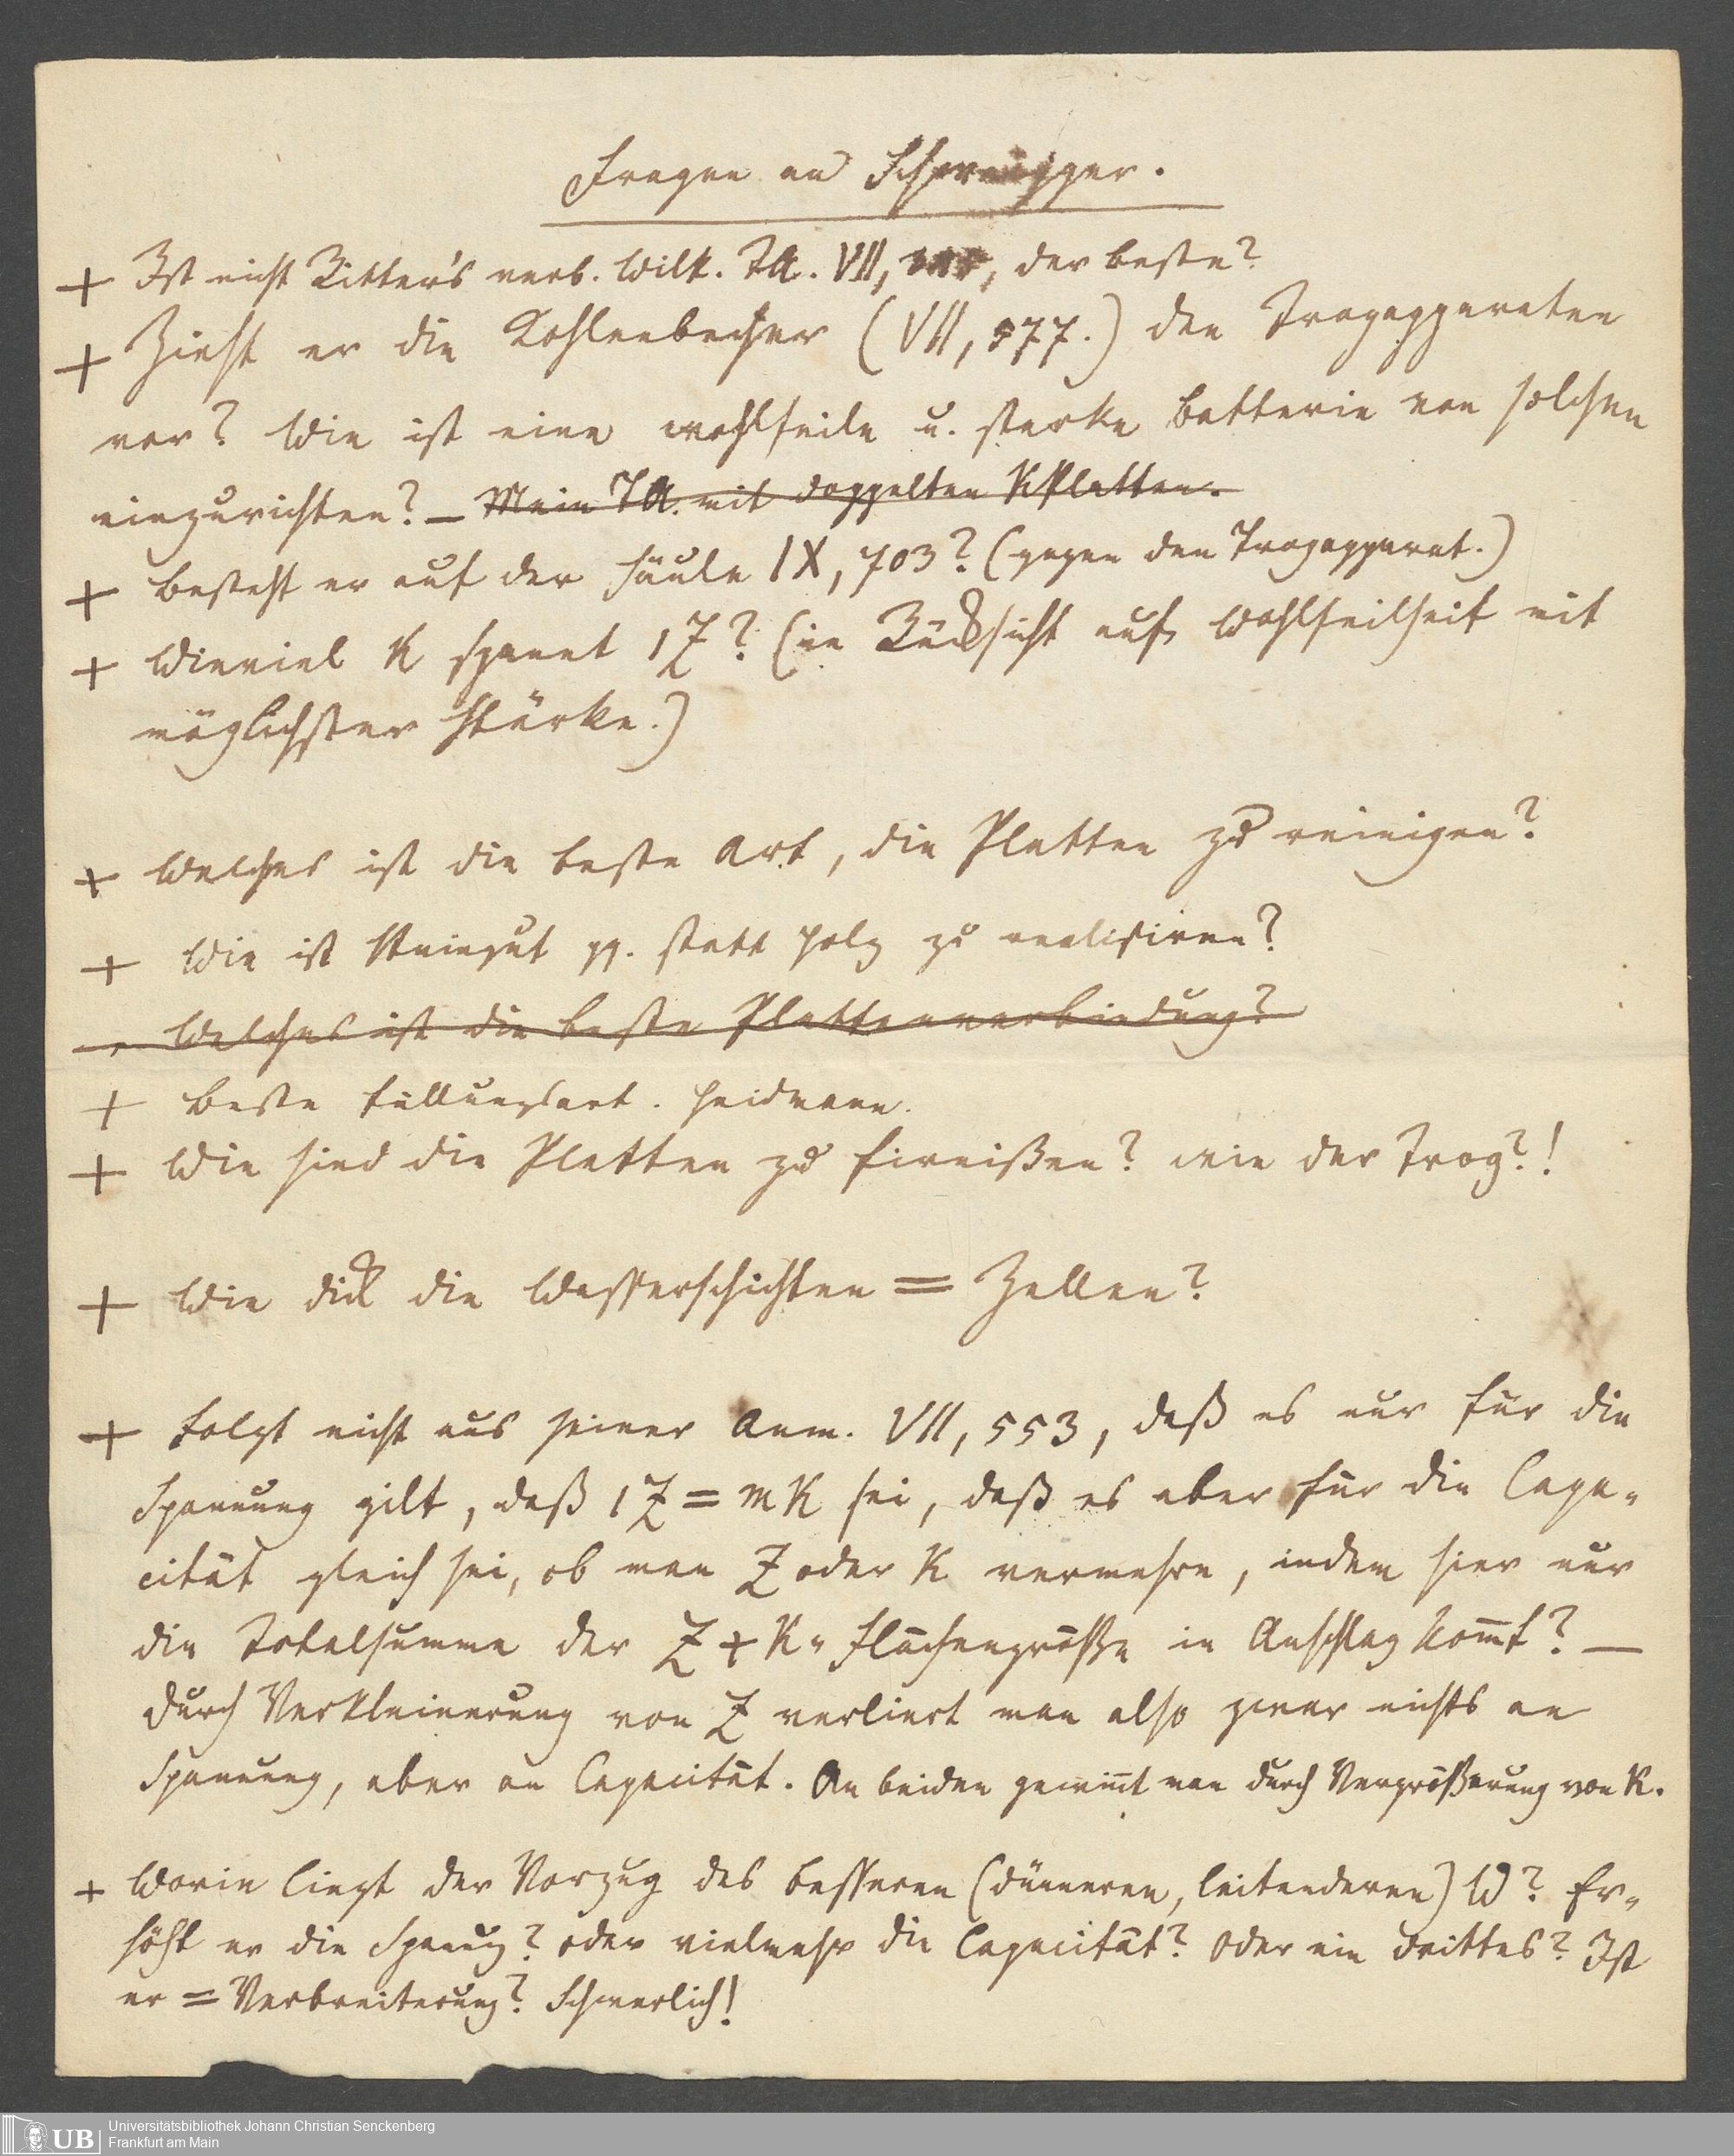 Fragen an Schweigger.
+ Ist nicht Ritter's verb. Wilk. TA. VII, der beste?
+ Zieht er die Kohlenbecher (VII, 577.) den Trogapparaten
vor? Wie ist eine wohlfeile u. starke Batterie von solchen
einzurichten? – Mein TA. mit doppelten KPlatten.
+ Besteht er auf der Säule IX, 703? (gegen den Trogapparat.)
+ Wieviel K spannt 1 Z? (in Rücksicht auf Wohlfeilheit mit
möglichster Stärke.)
+ Welches ist die beste Art, die Platten zu reinigen?
+ Wie ist Steingut pp. statt Holz zu realisiren?
Welches ist die beste Plattenverbindung?
+ Beste Füllungsart. Heidmann.
+ Wie sind die Platten zu firnißen? wie der Trog?!
+ Wie dick die Wasserschichten = Zellen?
+ Folgt nicht aus seiner Anm. VII, 553, daß es nur für die
Spannung gilt, daß 1 Z = mK sei, daß es aber für die Capa-
cität gleich sei, ob man Z oder K vermehre, indem hier nur
die Totalsumme der Z + K-Flächengröße in Anschlag kommt? –
Durch Verkleinerung von Z verliert man also zwar nichts an
Spannung, aber an Capacität. An beiden gewinnt man durch Vergrößerung von K.
+ Worin liegt der Vorzug des besseren (dünneren, leitenderen) W? Er-
höht er die Spanng? oder vielmehr die Capacität? Oder ein Drittes? Ist
er = Verbreiterung? Schwerlich!
UB
Universitätsbibliothek Johann Christian Senckenberg
Frankfurt am Main